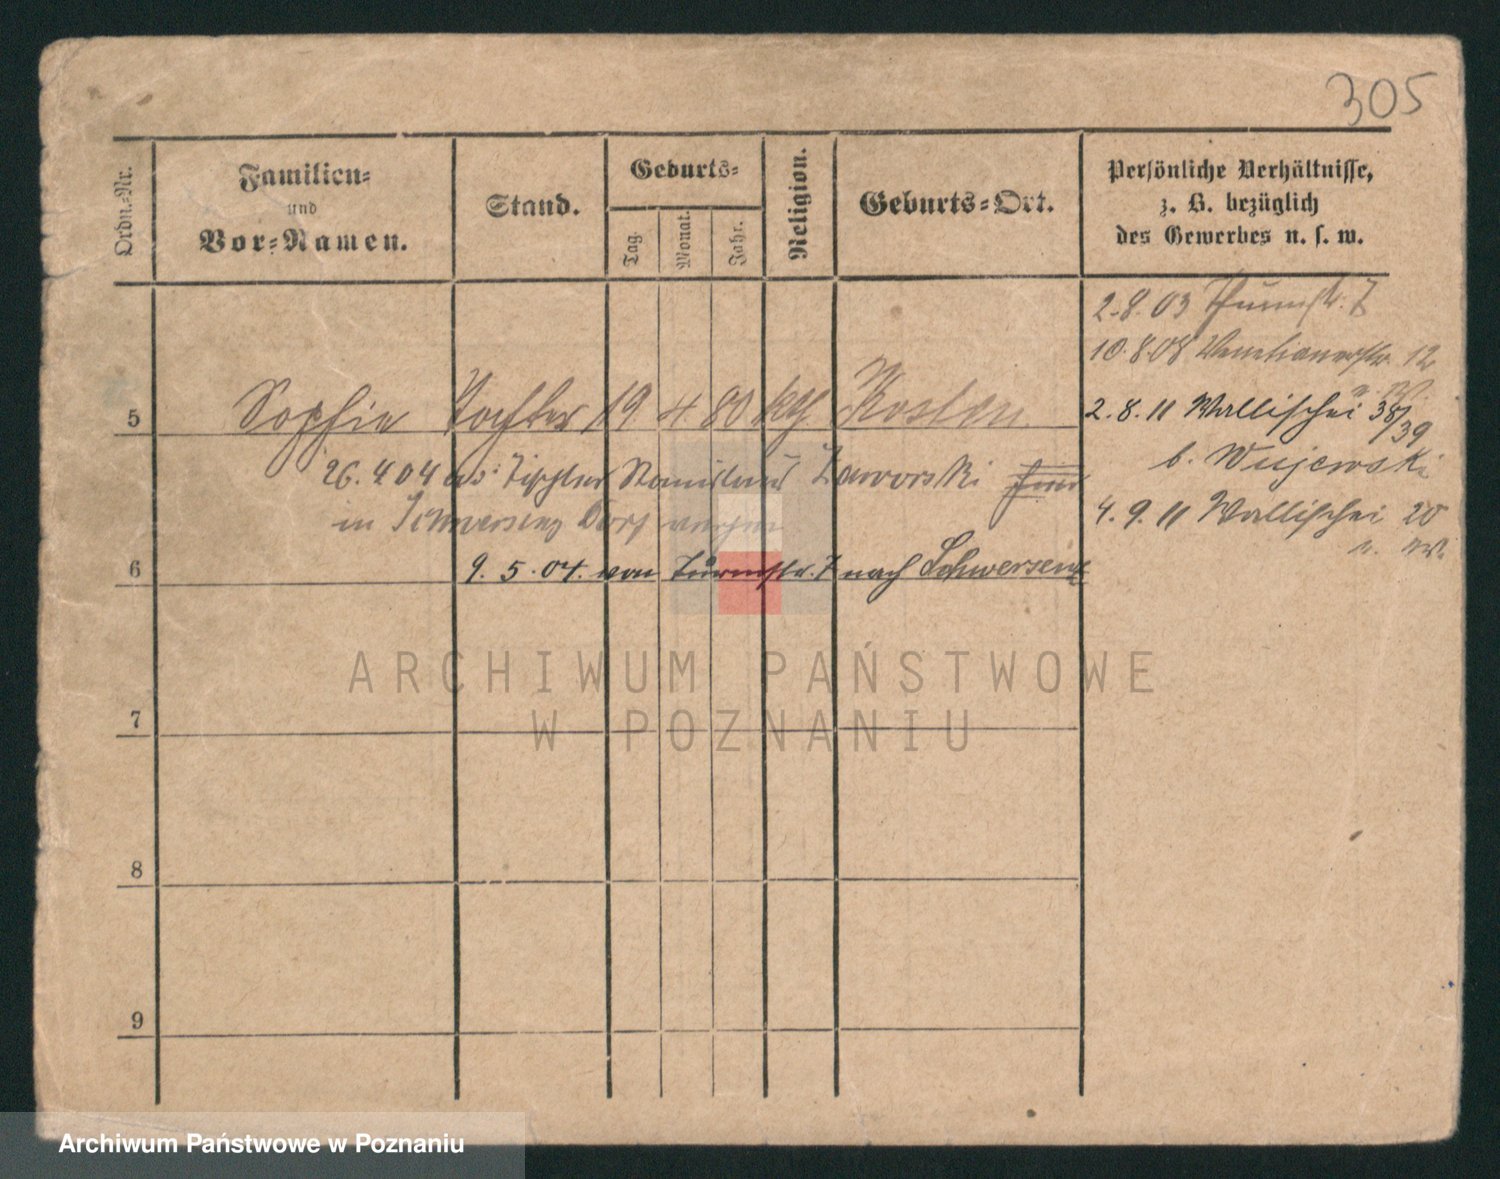 305
Ordn.-Nr.
Familien-
und
Vor-Namen.
Stand.
Geburts-
Tag.
Monat.
Jahr.
Religion.
Geburts-Ort.
Persönliche Verhältnisse,
z. B. bezüglich
des Gewerbes u. s. w.
2.8.03 Thurmstr. 7
10.8.08 Venetianerstr. 12
5 Sophie Tochter 19 4 80 kth Kosten
2.8.11 Wallischei 38/39
b. Wujewski
26.4.04 Tischler Stanislaus Zaworski
in Schwersenz Dorf
4.9.11 Wallischei 20
6 9.5.04. von Turmstr. 7 nach Schwersenz
7
8
9
ARCHIWUM PAŃSTWOWE
W POZNANIU
Archiwum Państwowe w Poznaniu